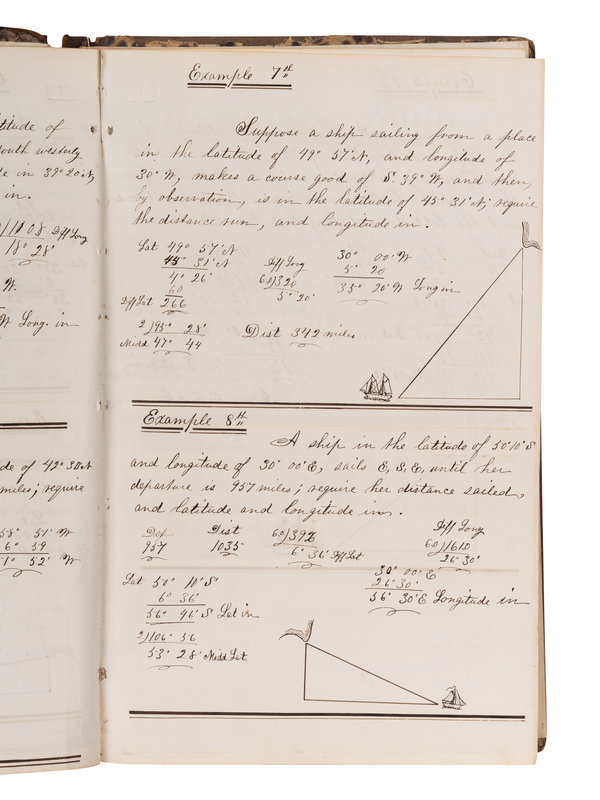 titude of
outh westerly
e in 39° 20' N,
in.
)1108 Diff Long
18° 28'
W.
W Long. in
de of 42° 30' N
miles; require
58° 51' W
6° 59
1° 52' W
Example 7th
Suppose a ship sailing from a place
in the latitude of 49° 57' N, and longitude of
30° W, makes a course good of S. 39° W, and then,
by observation, is in the latitude of 45° 31' N; require
the distance run, and longitude in.
Lat 49° 57' N
45° 31' N
4° 26'
60
Diff Lat 266
2)95° 28'
Midd 47° 44
Diff Long
60)320
5° 20'
30° 00' W
5° 20
35° 20' W Long in
Dist 342 miles
Example 8th
A ship in the latitude of 50° 10' S
and longitude of 30° 00' E, sails E, S, E, until her
departure is 957 miles; require her distance sailed,
and latitude and longitude in.
Dep
957
Dist
1035
60)396
6° 36' Diff Lat
Diff Long
60)1610
26° 30'
30° 00' E
26° 30'
56° 30' E Longitude in
Lat 50° 10' S
6° 36'
56° 46' S Lat in
2)106° 56
53° 28' Midd. Lat.